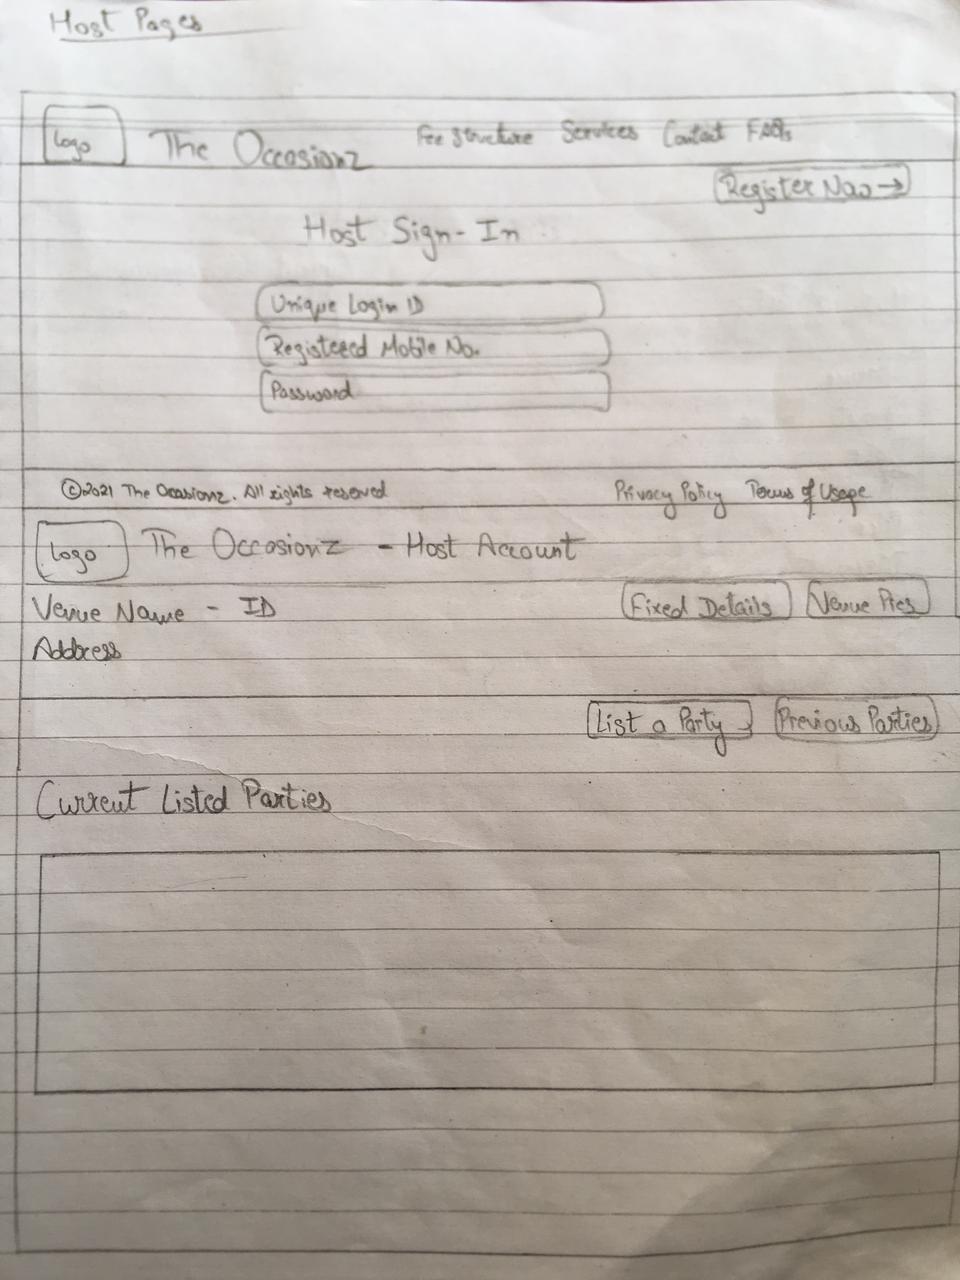 Host Pages
Logo The Occasionz Fee Structure Services Contact FAQs
Register Now →
Host Sign-In
Unique Login ID
Registered Mobile No.
Password
©2021 The Ocasionz. All rights reserved Privacy Policy Terms of Usage
Logo The Occasionz - Host Account
Venue Name - ID Fixed Details Venue Pics
Address
List a Party Previous Parties
Current Listed Parties